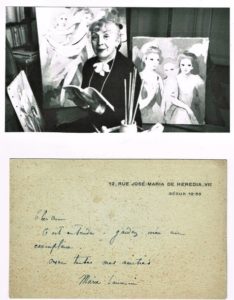 12, RUE JOSÉ-MARIA DE HEREDIA, VII
SÉGUR
Cher ami
C'est entendu - gardez moi un
exemplaire.
avec toutes mes amitiés
Marie Laurencin